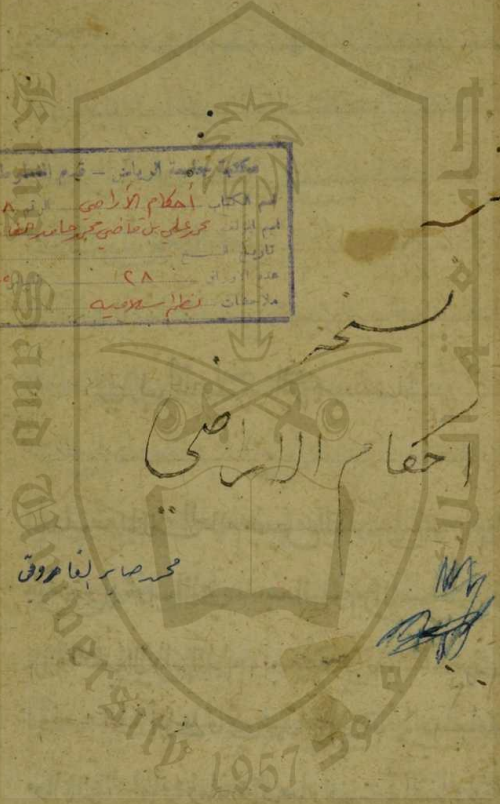 مكتبة جامعة الرياض - قسم المخطوطات
اسم الكتاب أحكام الأراضي الرقم
اسم المؤلف محمد علي بن قاضي محمد حامد
تاريخ النسخ
عدد الأوراق ٢٨
ملاحظات نظم اسلامية
نسخه
احكام الاراضي
محمد صابر الفاروقي
King Saud University
1957